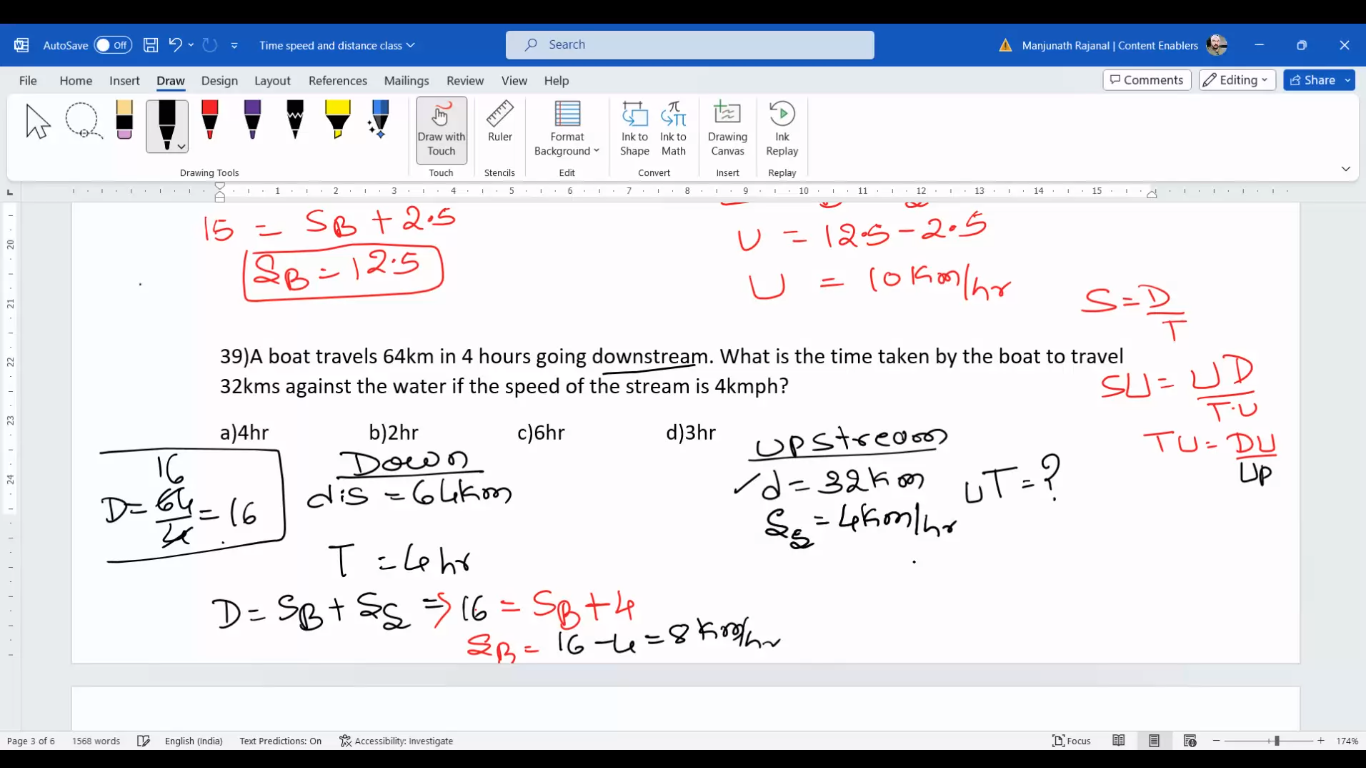 AutoSave Off Time speed and distance class Search Manjunath Rajanal | Content Enablers
File Home Insert Draw Design Layout References Mailings Review View Help Comments Editing Share
Draw with Touch Ruler Format Background Ink to Shape Ink to Math Drawing Canvas Ink Replay
Drawing Tools Touch Stencils Edit Convert Insert Replay
1 2 3 4 5 6 7 8 9 10 11 12 13 14 15
20
21
22
23
24
15 = SB + 2.5
SB = 12.5
U = 12.5 - 2.5
U = 10Km/hr
S = D/T
39)A boat travels 64km in 4 hours going downstream. What is the time taken by the boat to travel
32kms against the water if the speed of the stream is 4kmph?
SU = UD/T.U
a)4hr b)2hr c)6hr d)3hr
TU = DU/UP
16
D = 64/4 = 16
Down
dis = 64km
T = 4hr
upstream
✓ d = 32Km
UT = ?
SS = 4Km/hr
D = SB + SS => 16 = SB + 4
SB = 16 - 4 = 8 Km/hr
Page 3 of 6 1568 words English (India) Text Predictions: On Accessibility: Investigate Focus 174%